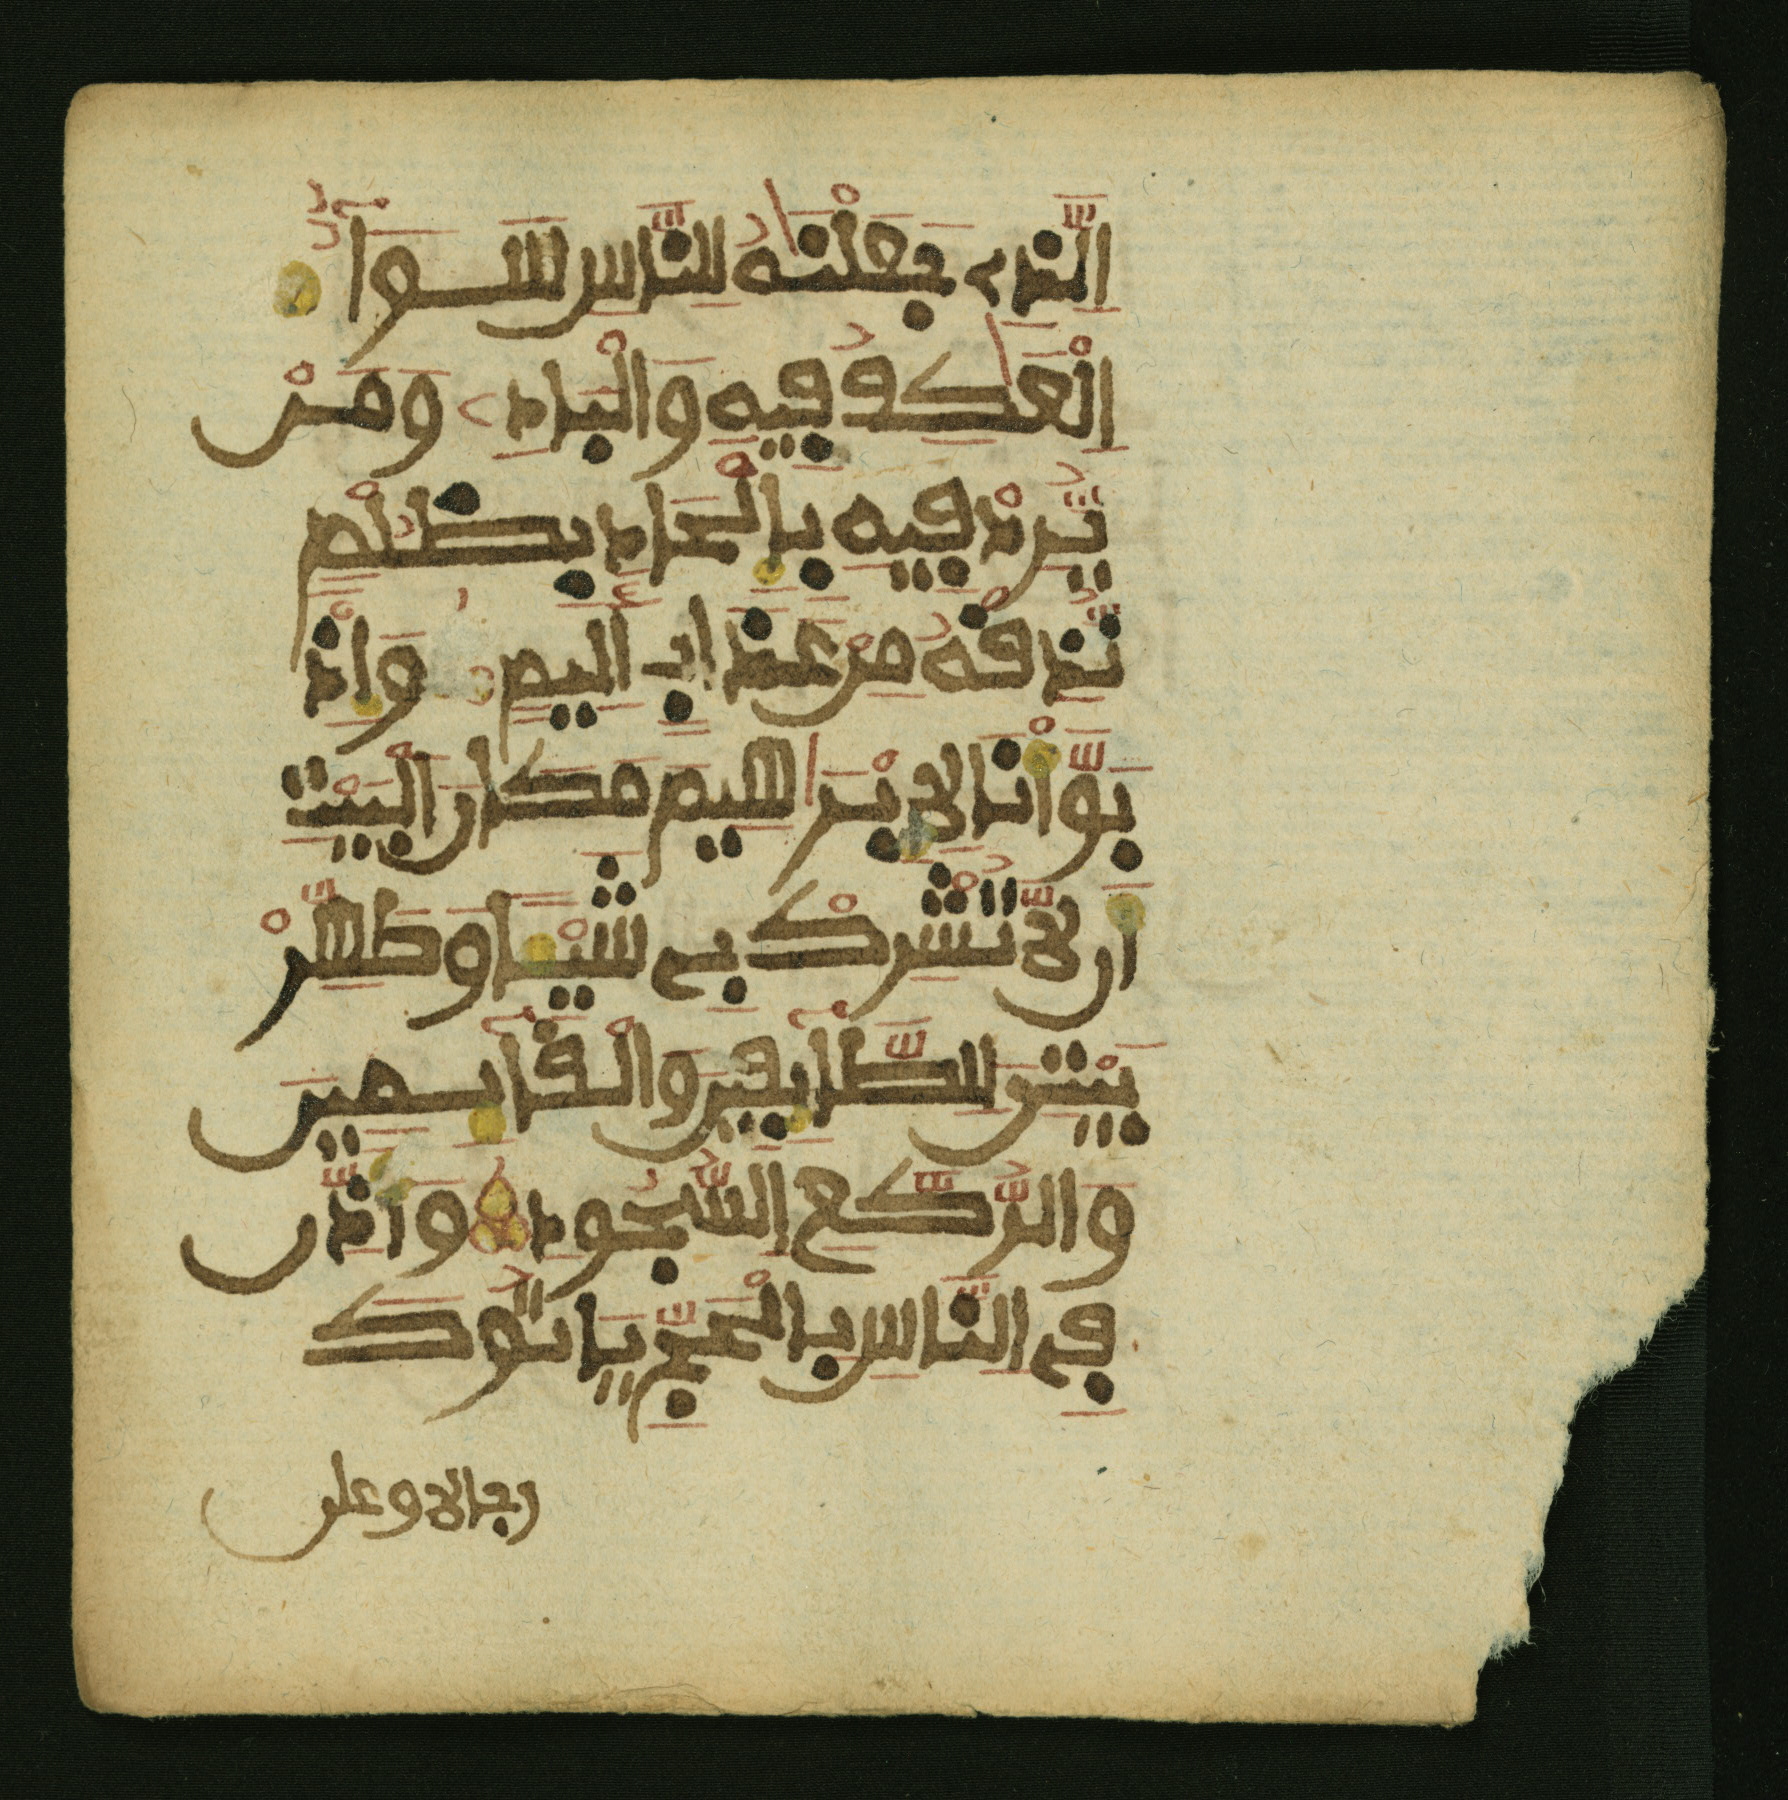 الَّذِے جَعَلْنَٰهُ لِلنَّاسِ سَوَآءٌ
اِلْعَٰكِفُ فِيهِ وَالْبَادِے وَمَنْ
يُّرِدْ فِيهِ بِإِلْحَادِ بِظُلْمٍ
نُّذِقْهُ مِنْ عَذَابٍ أَلِيمٍ وَإِذْ
بَوَّأْنَا لِإِبْرَٰهِيمَ مَكَانَ الْبَيْتِ
أَن لَّا تُشْرِكْ بِے شَيْـًٔا وَطَهِّرْ
بَيْتِيَ لِلطَّآئِفِينَ وَالْقَآئِمِينَ
وَالرُّكَّعِ السُّجُودِ وَأَذِّن
فِے النَّاسِ بِالْحَجِّ يَاتُوكَ
رجالا وعلى